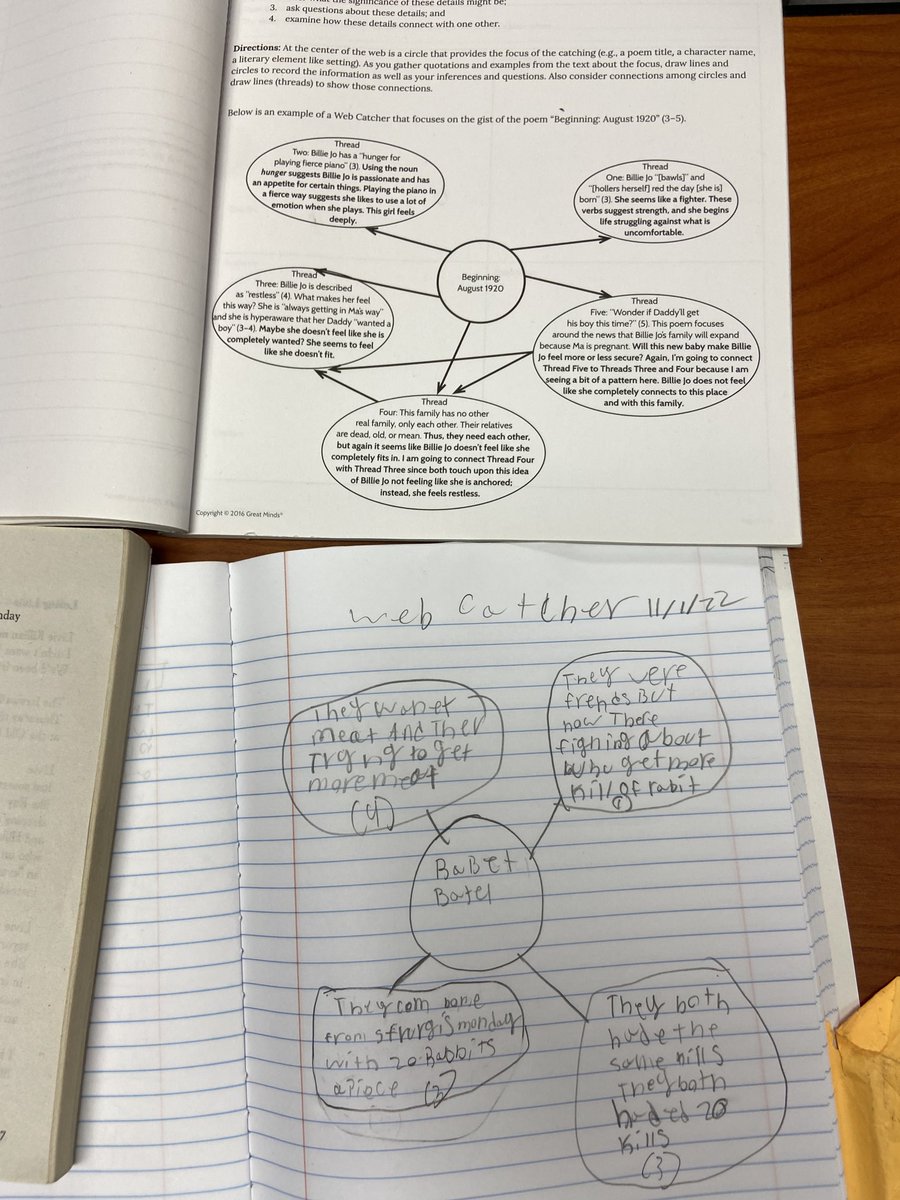 the significance of these details might be;
3. ask questions about these details; and
4. examine how these details connect with one other.
Directions: At the center of the web is a circle that provides the focus of the catching (e.g., a poem title, a character name,
a literary element like setting). As you gather quotations and examples from the text about the focus, draw lines and
circles to record the information as well as your inferences and questions. Also consider connections among circles and
draw lines (threads) to show those connections.
Below is an example of a Web Catcher that focuses on the gist of the poem “Beginning: August 1920” (3–5).
Thread
Two: Billie Jo has a “hunger for
playing fierce piano” (3). Using the noun
hunger suggests Billie Jo is passionate and has
an appetite for certain things. Playing the piano in
a fierce way suggests she likes to use a lot of
emotion when she plays. This girl feels
deeply.
Thread
One: Billie Jo “[bawls]” and
“[hollers herself] red the day [she is]
born” (3). She seems like a fighter. These
verbs suggest strength, and she begins
life struggling against what is
uncomfortable.
Beginning:
August 1920
Thread
Three: Billie Jo is described
as “restless” (4). What makes her feel
this way? She is “always getting in Ma’s way”
and she is hyperaware that her Daddy “wanted a
boy” (3–4). Maybe she doesn’t feel like she is
completely wanted? She seems to feel
like she doesn’t fit.
Thread
Five: “Wonder if Daddy’ll get
his boy this time?” (5). This poem focuses
around the news that Billie Jo’s family will expand
because Ma is pregnant. Will this new baby make Billie
Jo feel more or less secure? Again, I’m going to connect
Thread Five to Threads Three and Four because I am
seeing a bit of a pattern here. Billie Jo does not feel
like she completely connects to this place
and with this family.
Thread
Four: This family has no other
real family, only each other. Their relatives
are dead, old, or mean. Thus, they need each other,
but again it seems like Billie Jo doesn’t feel like she
completely fits in. I am going to connect Thread Four
with Thread Three since both touch upon this idea
of Billie Jo not feeling like she is anchored;
instead, she feels restless.
Copyright © 2016 Great Minds®
nday
7
web Catcher 11/1/22
They wanet
meat And Ther
Trying to get
more meat
(4)
They vere
frends But
now There
figning about
who get more
Kill of rabit
(1)
BaBet
Batel
They com bane
from sturgis monday
with 20 Rabbits
a Piece (2)
They both
hade the
same kills
They both
haded 20
kills
(3)